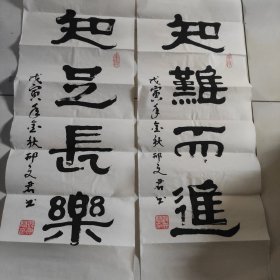 知難而進
戊寅年金秋邵文君书
知足長樂
戊寅年金秋邵文君书